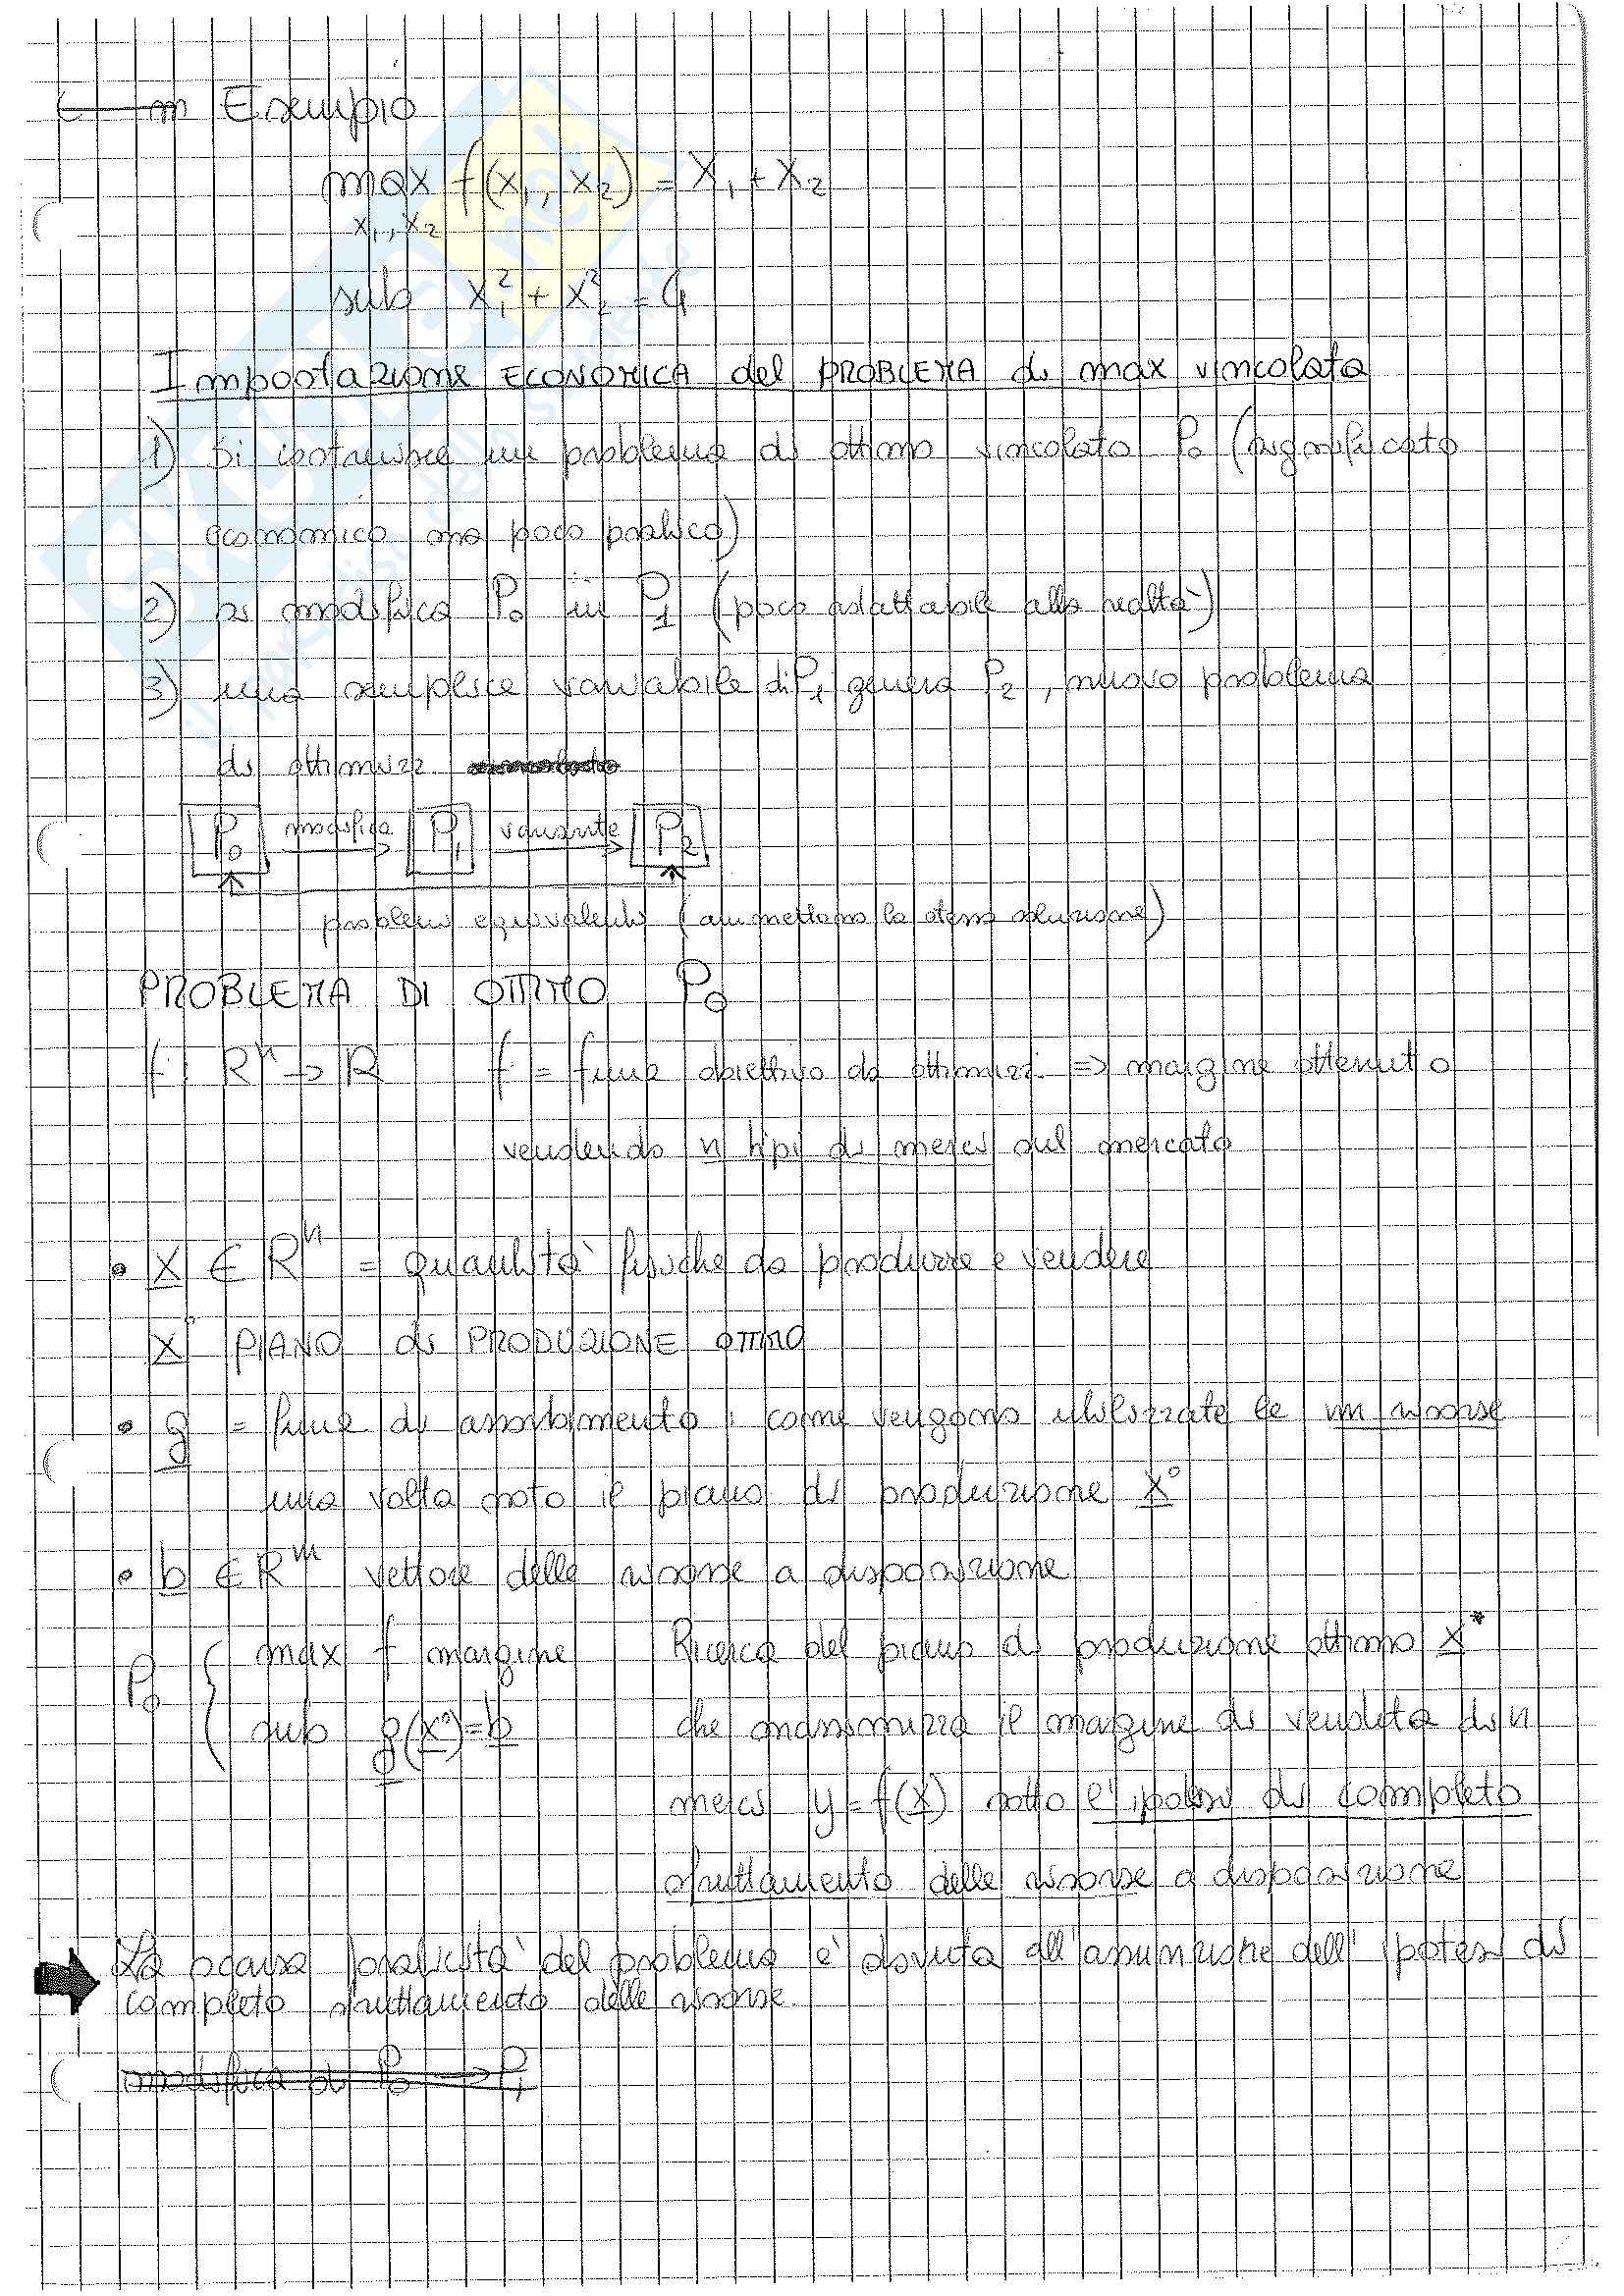 Esempio
max f(x₁, x₂) = x₁ + x₂
x₁, x₂
sub x₁² + x₂² = 4
Impostazione ECONOMICA del PROBLEMA di max vincolata
1) si costruisce un problema di ottimo vincolato P₀ (significato
economico ma poco pratico)
2) si modifica P₀ in P₁ (poco adattabile alla realtà)
3) una semplice variabile di P₁ genera P₂, nuovo problema
di ottimizz.
P₀ modifica → P₁ variante → P₂
problemi equivalenti (ammettono la stessa soluzione)
PROBLEMA DI OTTIMO P₀
f: Rⁿ → R f = funz obiettivo da ottimizz. => margine ottenuto
vendendo n tipi di merci sul mercato
• x ∈ Rⁿ = quantità fisiche da produrre e vendere
x° PIANO di PRODUZIONE OTTIMO
• g = funz di assorbimento: come vengono utilizzate le m risorse
una volta noto il piano di produzione x°
• b ∈ Rᵐ vettore delle risorse a disposizione
P₀ { max f margine Ricerca del piano di produzione ottimo x*
sub g(x°) = b che massimizza il margine di vendita di n
merci y = f(x) sotto l'ipotesi di completo
sfruttamento delle risorse a disposizione
La scarsa praticità del problema è dovuta all'assunzione dell'ipotesi di
completo sfruttamento delle risorse.
modifica di P₀ → P₁